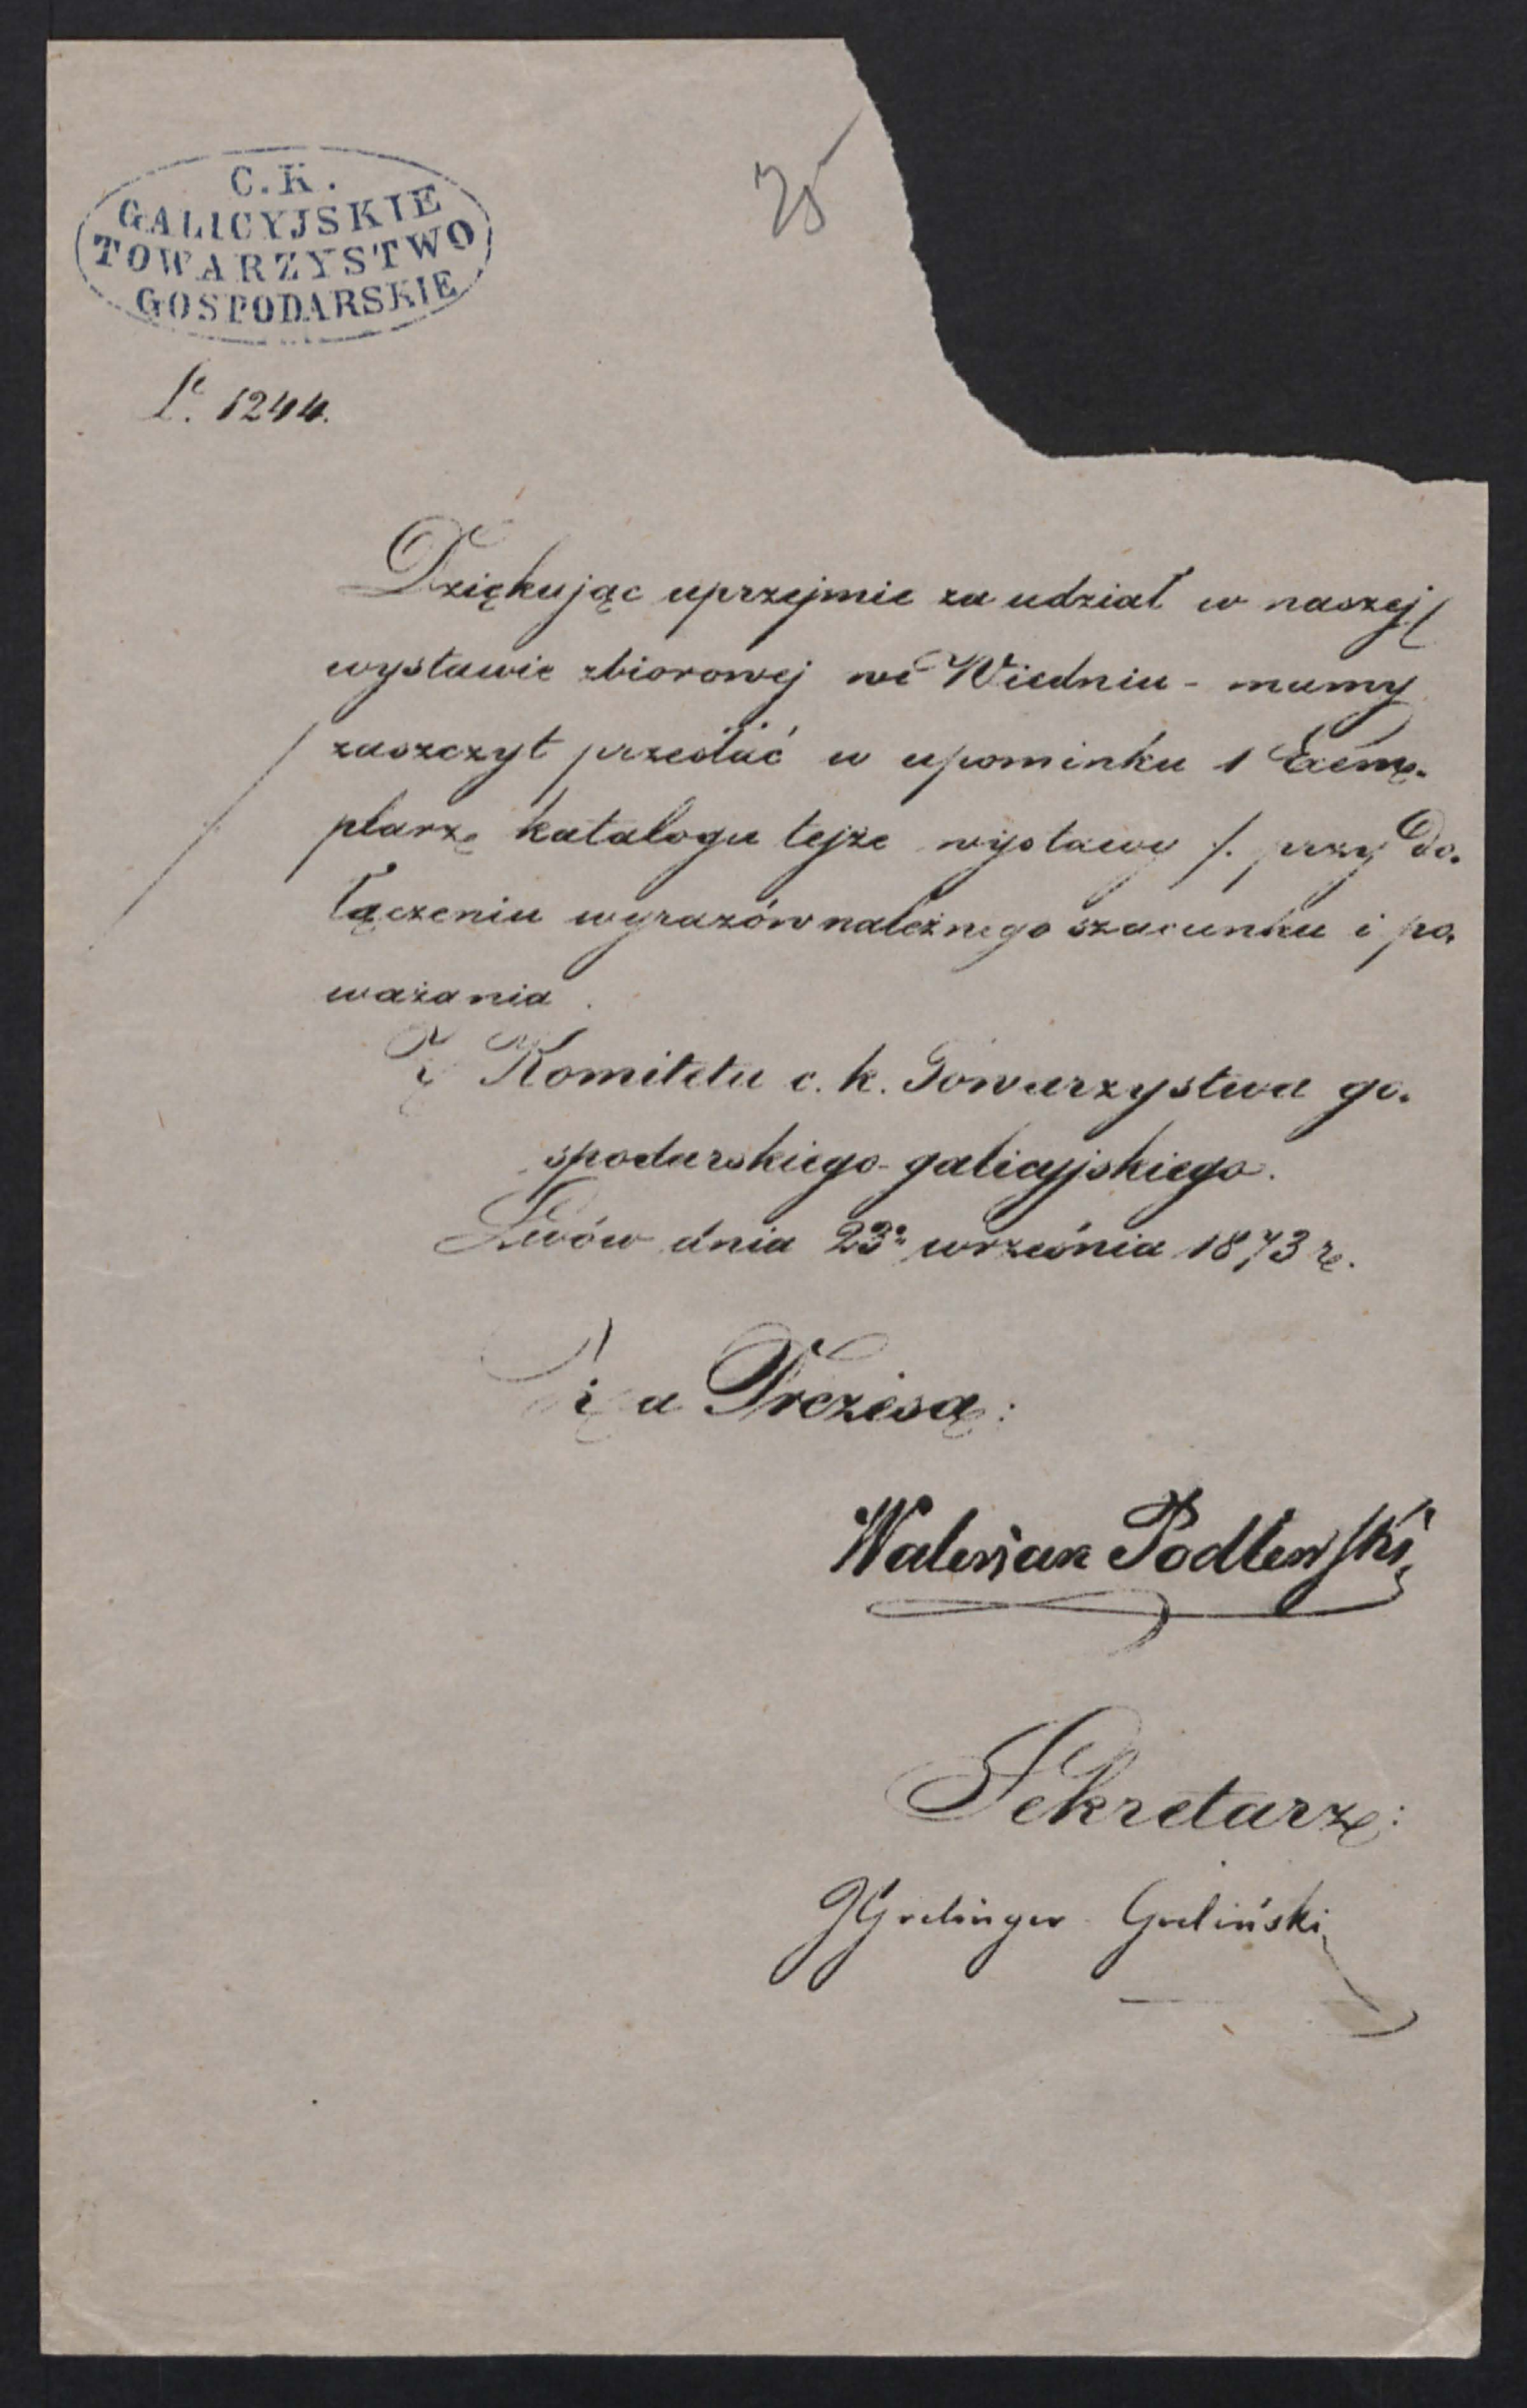 C. K.
GALICYJSKIE
TOWARZYSTWO
GOSPODARSKIE
25
L. 1244.
Dziękując uprzejmie za udział w naszej
wystawie zbiorowej we Wiedniu - mamy
zaszczyt przesłać w upominku 1 Exem-
plarz katalogu tejże wystawy /. przy do-
łączeniu wyrazów należnego szacunku i po-
ważania.
Z Komitetu c. k. Towarzystwa go-
spodarskiego galicyjskiego.
Lwów dnia 23. września 1873 r.
Za Prezesa:
Waleryan Podlewski
Sekretarz:
JGrelinger Greliński